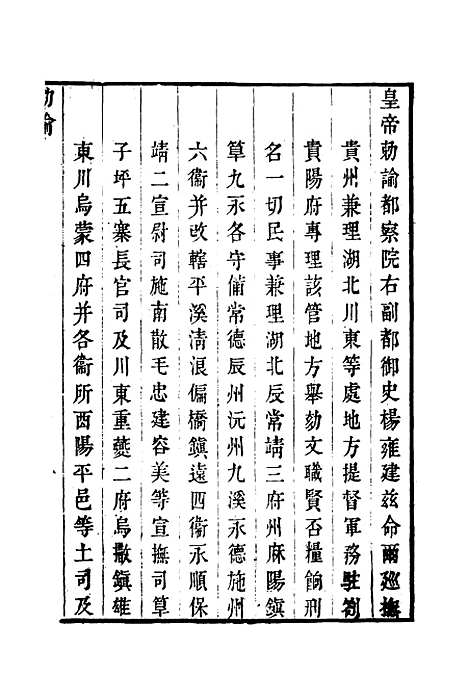 皇帝勅諭都察院右副都御史楊雍建茲命爾廵撫
貴州兼理湖北川東等處地方提督軍務駐劄
貴陽府專理該管地方舉劾文職賢否糧餉刑
名一切民事兼理湖北辰常靖三府州麻陽鎮
草九永各守備常德辰州沅州九溪永德施州
六衞并改轄平溪淸浪偏橋鎮遠四衞永順保
靖二宣尉司施南散毛忠建容美等宣撫司草
子坪五寨長官司及川東重夔二府烏撒鎮雄
東川烏蒙四府并各衞所酉陽平邑等土司及
勅諭